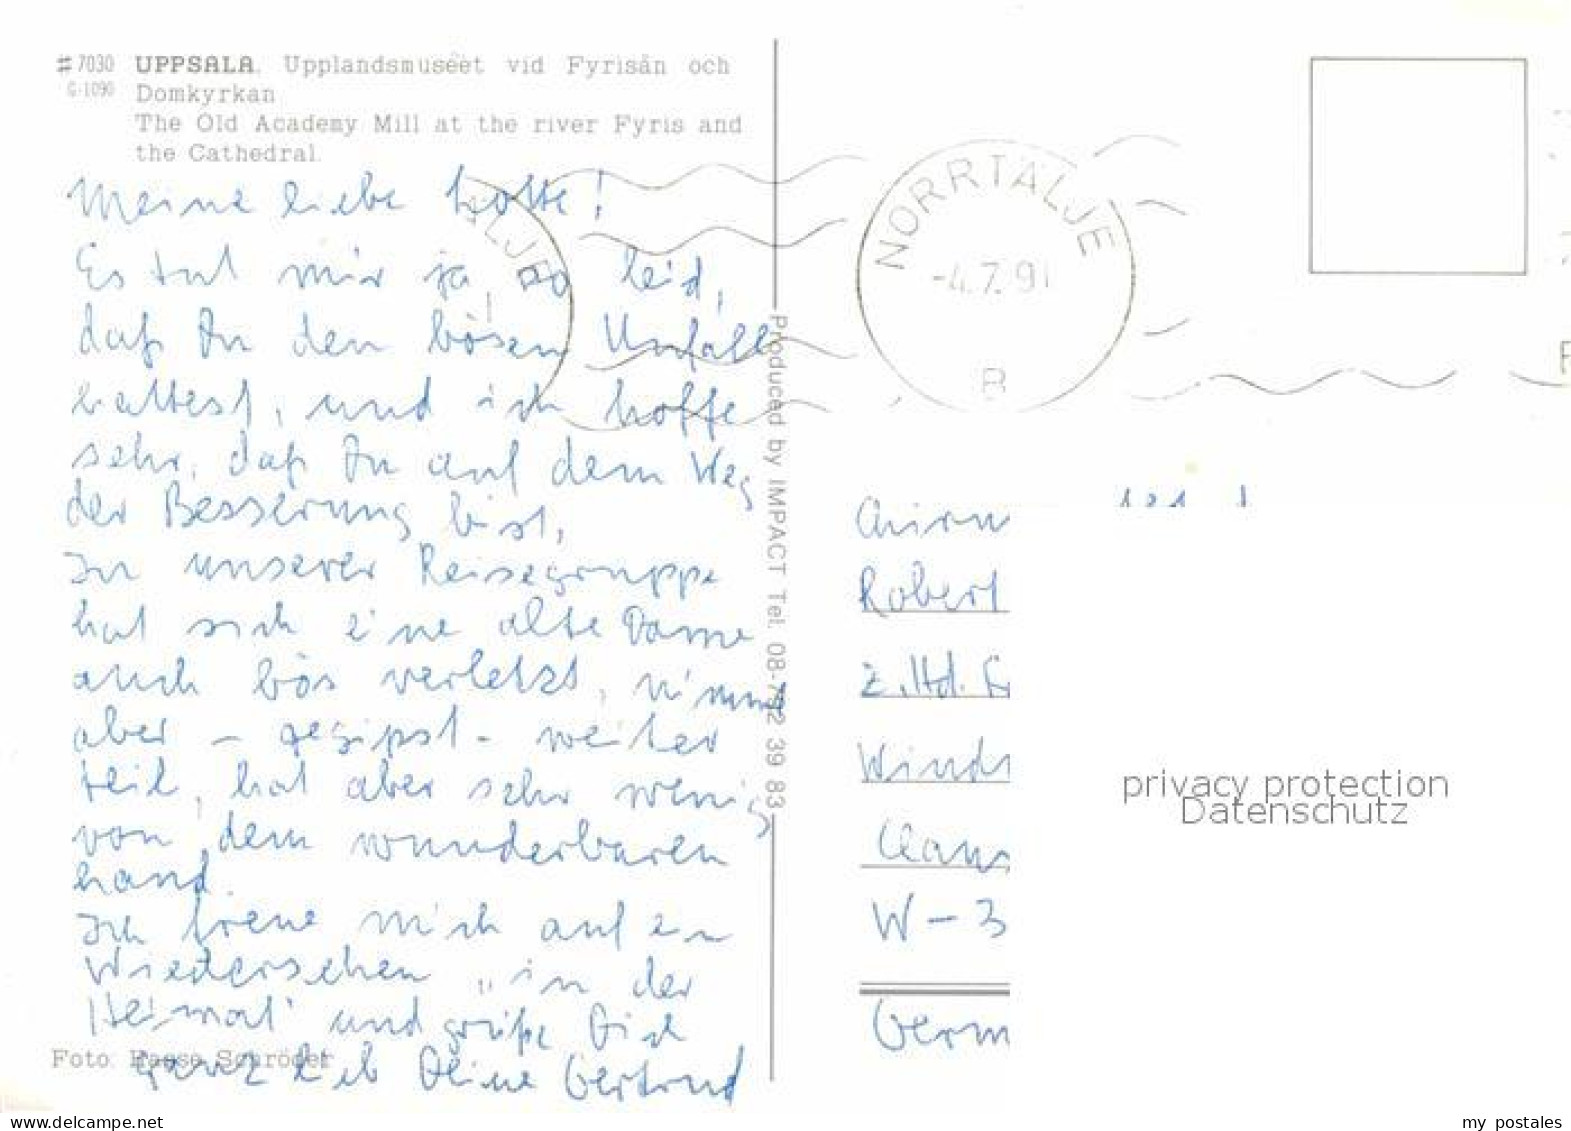 # 7030 UPPSALA. Upplandsmuséet vid Fyrisån och
G-1090 Domkyrkan
The Old Academy Mill at the river Fyris and
the Cathedral.
Meine liebe Lotte!
Es tut mir ja so leid,
daß Du den bösen Unfall
hattest, und ich hoffe
sehr, daß Du auf dem Weg
der Besserung bist,
In unserer Reisegruppe
hat sich eine alte Dame
auch bös verletzt, nimmt
aber - gegipst - weiter
teil, hat aber sehr wenig
von dem wunderbaren
Land.
Ich freue mich auf ein
Wiedersehen "in der
Heimat" und grüße Dich
ganz lieb Deine Gertrud
Foto: Hasse Schröder
Produced by IMPACT Tel. 08-742 39 83
LJE
NORRTÄLJE
-4.7.91
B
Robert
z.Hd.
W-3
privacy protection
Datenschutz
www.delcampe.net
my_postales